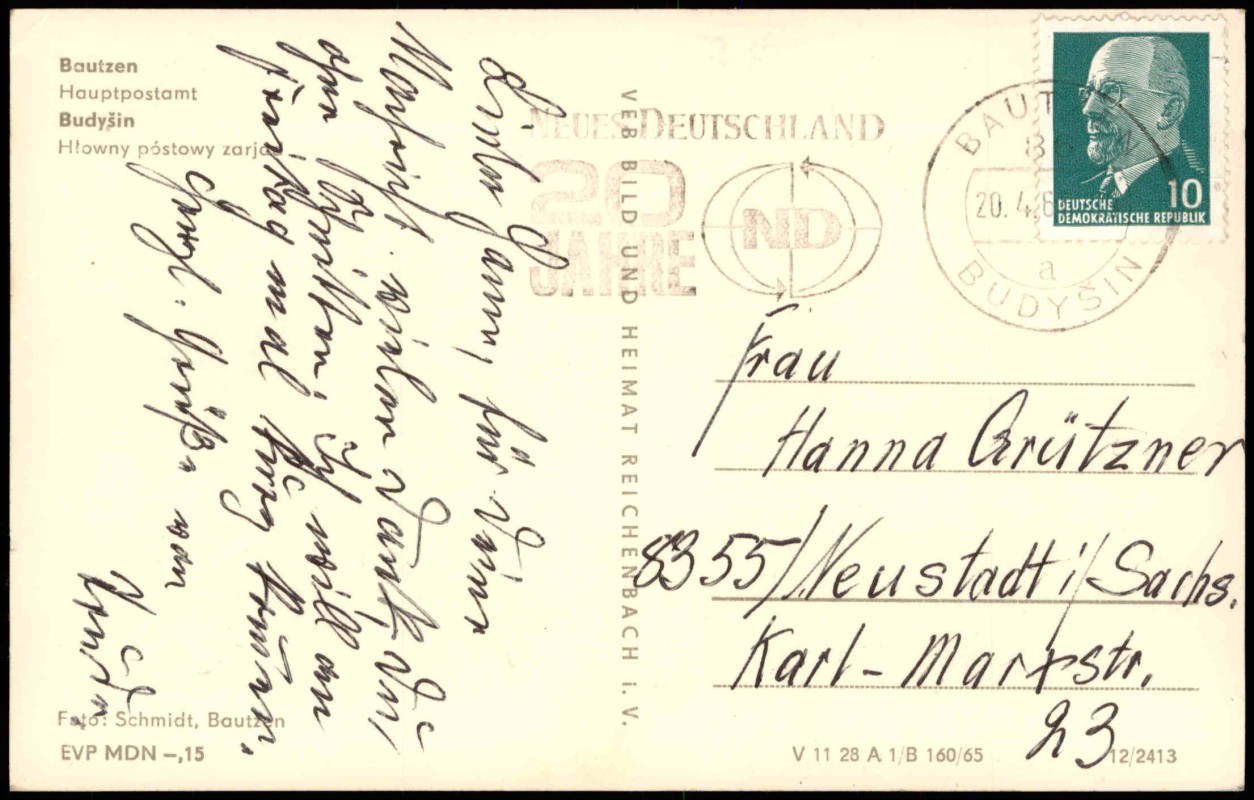 Bautzen
Hauptpostamt
Budyšin
Hłowny póstowy zarjad
NEUES DEUTSCHLAND
20
JAHRE
ND
BAUT
BUDYŠIN
20. 4. 6
a
DEUTSCHE
DEMOKRATISCHE REPUBLIK
10
Liebe Hanni, für Deine
Nachricht vielen Dank, Du
Ich will am
Freitag mal kommen.
Herzl. Grüße von
VEB BILD UND HEIMAT REICHENBACH i. V.
Frau
Hanna Grützner
8355/Neustadt i/Sachs.
Karl-Marxstr.
23
Foto: Schmidt, Bautzen
EVP MDN –,15
V 11 28 A 1/B 160/65
12/2413